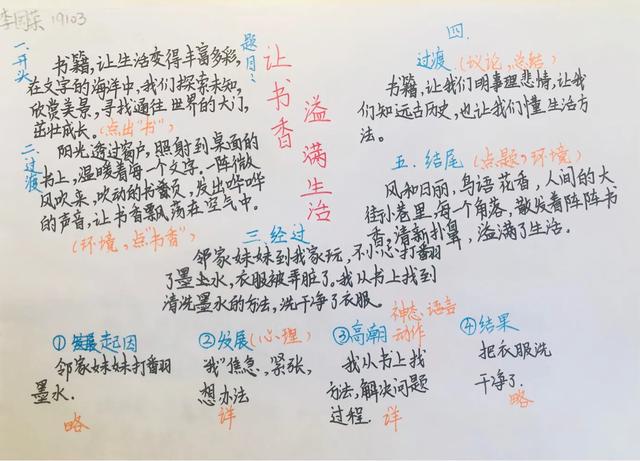 李国荣 19103
题目:
让书香
溢满生活
一.开头
书籍,让生活变得丰富多彩,
在文字的海洋中,我们探索未知,
欣赏美景,寻找通往世界的大门,
茁壮成长。(点出"书")
二.过渡
阳光透过窗户,照射到桌面的
书上,温暖着每一个文字。一阵微
风吹来,吹动的书页,发出哗哗
的声音,让书香飘荡在空气中。
(环境,点"书香")
三.经过
邻家妹妹到我家玩,不小心打翻
了墨水,衣服被弄脏了。我从书上找到
清洗墨水的方法,洗干净了衣服。
①起因
邻家妹妹打翻
墨水.
略
②发展(心理)
"我"焦急,紧张,
想办法
详
③高潮
神态 语言
动作
我从书上找
方法,解决问题
过程.详
④结果
把衣服洗
干净了.
略
四.
过渡(议论,总结)
书籍,让我们明事理悲情,让我
们知远古历史,也让我们懂生活方
法。
五.结尾(点题,环境)
风和日丽,鸟语花香,人间的大
街小巷里,每一个角落,散发着阵阵书
香,清新扑鼻,溢满了生活。